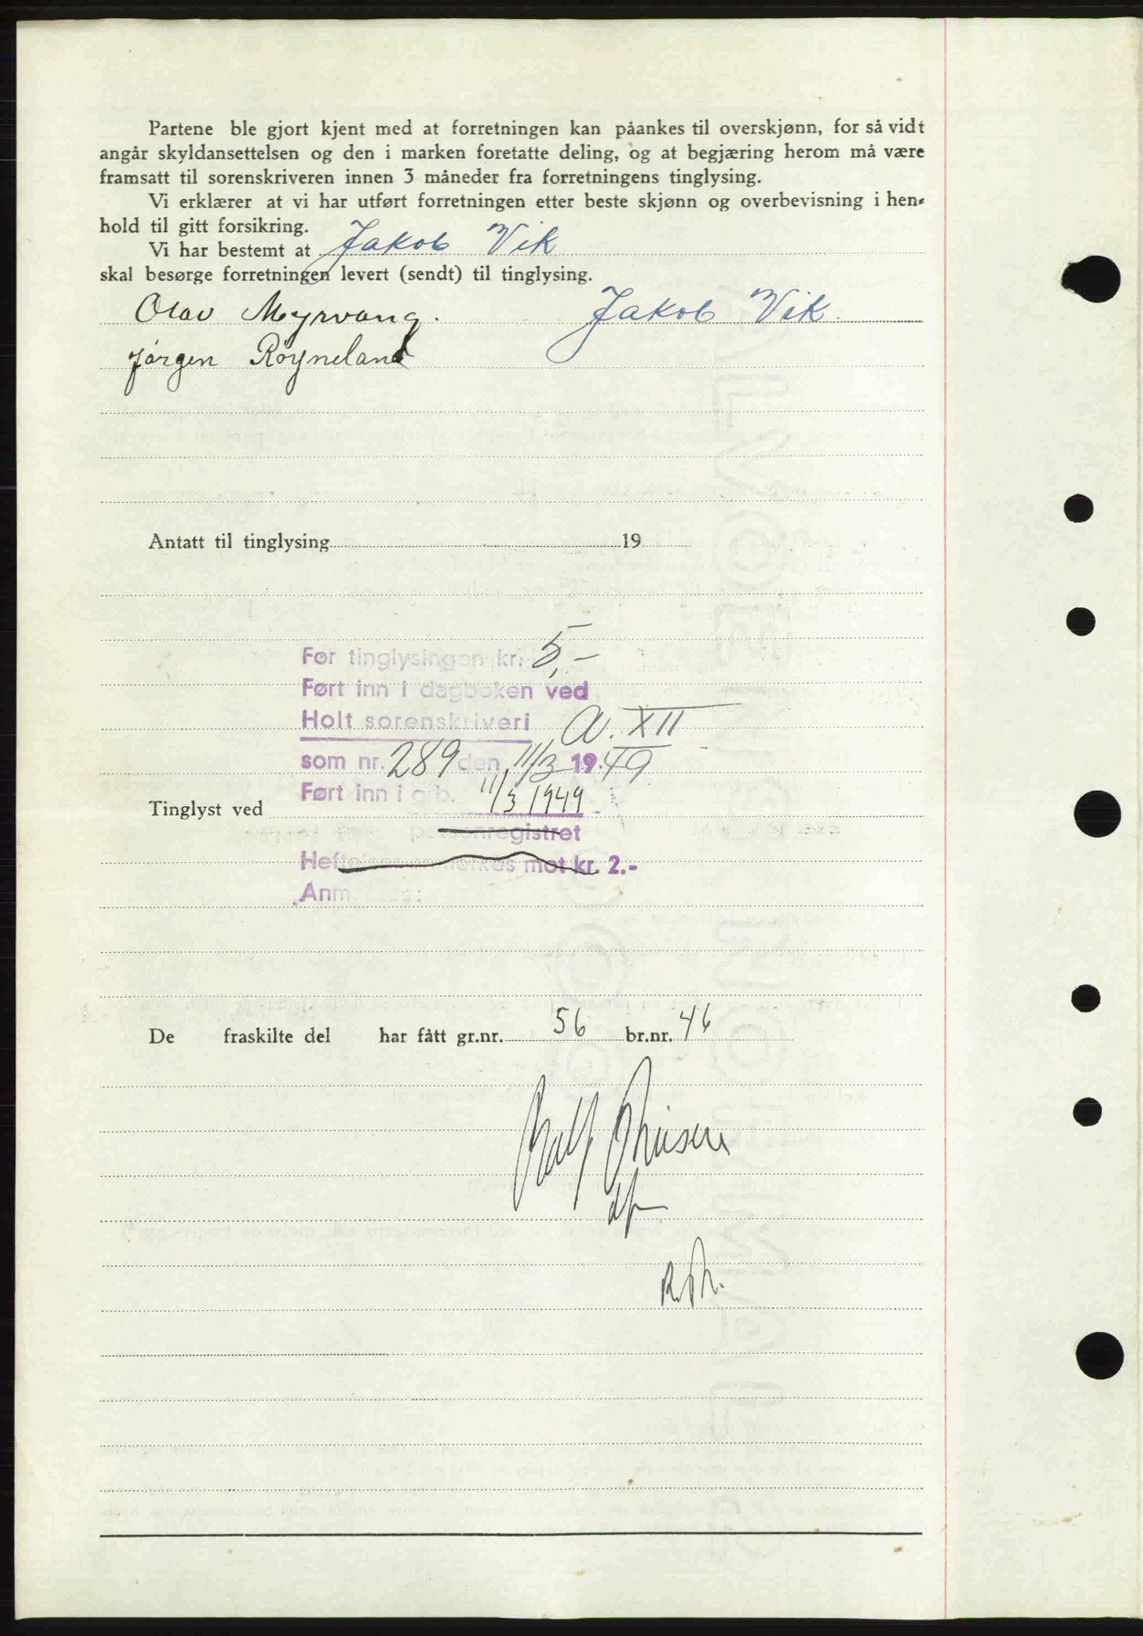 Partene ble gjort kjent med at forretningen kan påankes til overskjønn, for så vidt
angår skyldansettelsen og den i marken foretatte deling, og at begjæring herom må være
framsatt til sorenskriveren innen 3 måneder fra forretningens tinglysing.
Vi erklærer at vi har utført forretningen etter beste skjønn og overbevisning i hen-
hold til gitt forsikring.
Vi har bestemt at Jakob Vik
skal besørge forretningen levert (sendt) til tinglysing.
Olav Myrvang. Jakob Vik.
Jørgen Røyneland
Antatt til tinglysing 19
For tinglysingen kr. 5,-
Ført inn i dagboken ved
Holt sorenskriveri A. XII
som nr. 289 den 11/3 19.49
Ført inn i g.b. 11/3 1949
Tinglyst ved
registret
mot kr. 2.-
De fraskilte del har fått gr.nr. 56 br.nr. 46